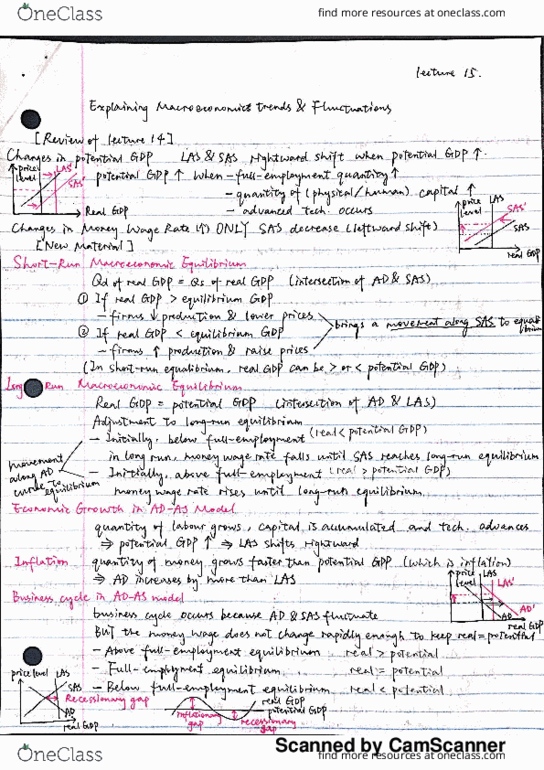 OneClass
find more resources at oneclass.com
lecture 15.
Explaining Macroeconomics trends & Fluctuations
[Review of lecture 14]
Changes in potential GDP LAS & SAS rightward shift when potential GDP ↑.
price level LAS' SAS' Real GDP
potential GDP ↑ when – full-employment quantity ↑
– quantity of (physical/human) capital ↑
– advanced tech. occurs
price level LAS SAS' SAS real GDP
Changes in Money Wage Rate (↑) ONLY SAS decrease (leftward shift)
[New Material]
Short-Run Macroeconomic Equilibrium
Qd of real GDP = Qs of real GDP (intersection of AD & SAS)
① If real GDP > equilibrium GDP
– firms ↓ production & lower prices
② If real GDP < equilibrium GDP
– firms ↑ production & raise prices
brings a movement along SAS to equilibrium
(In short-run equalibrium, real GDP can be > or < potential GDP)
Long Run Macroeconomic Equilibrium
Real GDP = potential GDP (intersection of AD & LAS)
Adjustment to long-run equilibrium
– Initially, below full-employment (real < potential GDP)
in long run, money wage rate falls until SAS reaches long-run equilibrium
– Initially, above full-employment (real > potential GDP)
money wage rate rises until long-run equilibrium.
movement along AD curve to equilibrium
Economic Growth in AD-AS Model
quantity of labour grows, capital is accumulated and tech. advances
⇒ potential GDP ↑ ⇒ LAS shifts rightward
Inflation quantity of money grows faster than potential GDP (which is inflation)
⇒ AD increases by more than LAS
price level LAS LAS' AD' AD real GDP
Business cycle in AD-AS model
business cycle occurs because AD & SAS fluctuate
BUT the money wage does not change rapidly enough to keep real = potential
– Above full-employment equilibrium real > potential
– Full-employment equilibrium real = potential
– Below full-employment equilibrium real < potential
price level LAS SAS Recessionary gap AD real GDP
real GDP potential GDP inflationary gap recessionary gap
Scanned by CamScanner
OneClass
find more resources at oneclass.com